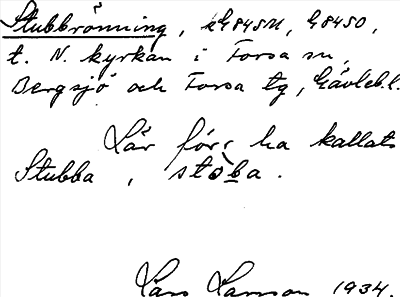 Stubbrönning, kG845M, G8450,
t. N. kyrkan i Forsa sn,
Bergsjö och Forsa tg, Gävleb.l.
Lär förr ha kallats
Stubba, stòba.
Lars Larsson 1934.